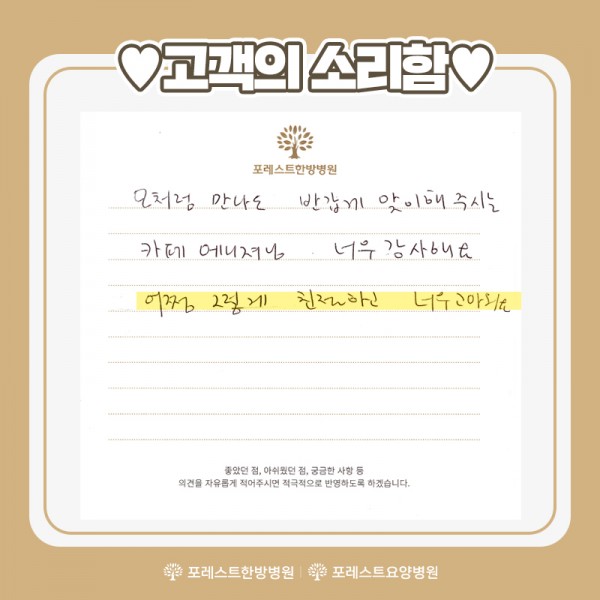 ♥고객의 소리함♥
포레스트한방병원
모처럼 만나도 반갑게 맞이해 주시는
카페 매니져님 너무 감사해요
어쩜 그렇게 친절하고 너무 고마워요
좋았던 점, 아쉬웠던 점, 궁금한 사항 등
의견을 자유롭게 적어주시면 적극적으로 반영하도록 하겠습니다.
포레스트한방병원 | 포레스트요양병원